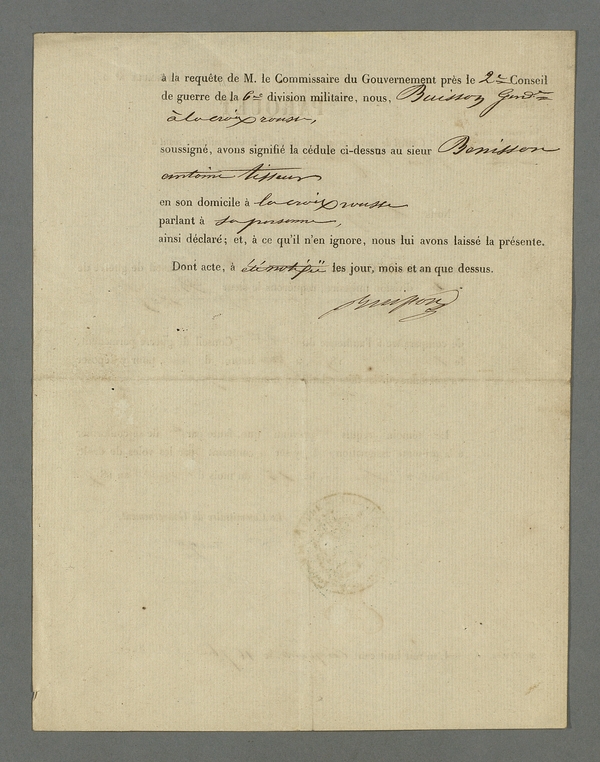 à la requête de M. le Commissaire du Gouvernement près le 2me Conseil
de guerre de la 6me division militaire, nous, Buisson Gendme
à la croix rousse,
soussigné, avons signifié la cédule ci-dessus au sieur Benisson
antoine tisseur
en son domicile à la croix rousse
parlant à sa personne,
ainsi déclaré; et, à ce qu'il n'en ignore, nous lui avons laissé la présente.
Dont acte, à été notifié les jour, mois et an que dessus.
Buisson